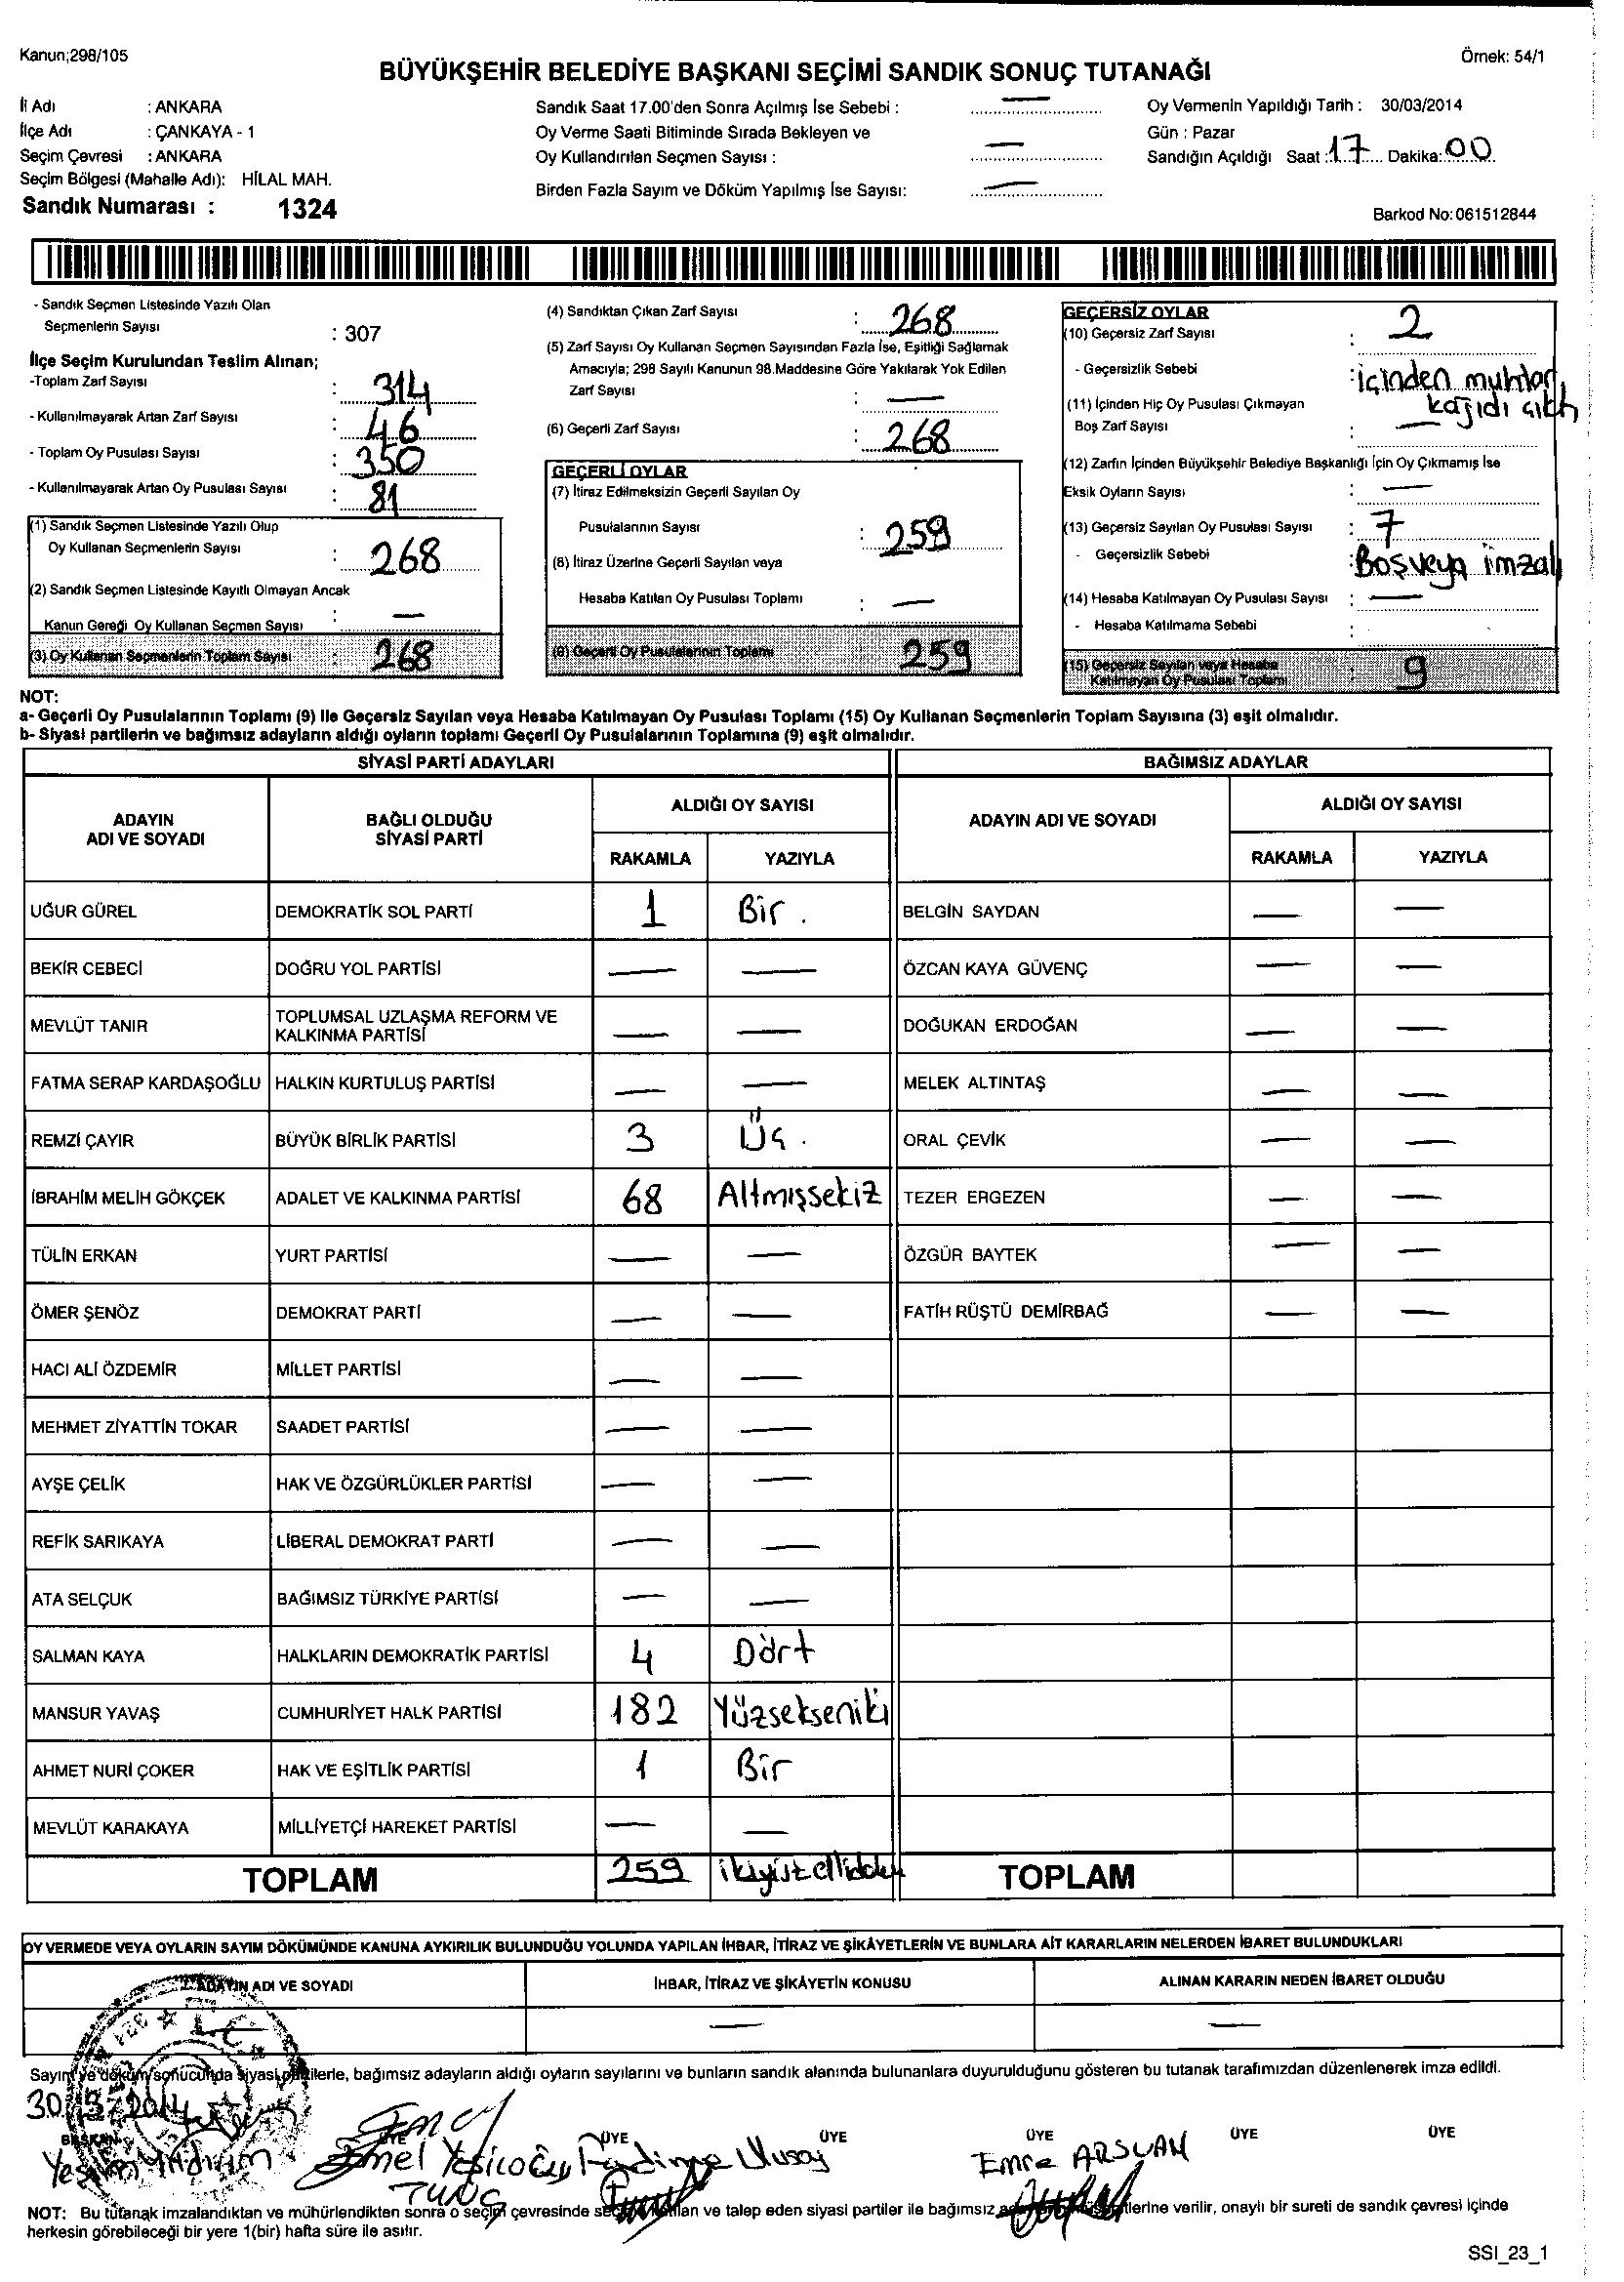 Kanun;298/105
Örnek: 54/1
BÜYÜKŞEHİR BELEDİYE BAŞKANI SEÇİMİ SANDIK SONUÇ TUTANAĞI
İl Adı : ANKARA
İlçe Adı : ÇANKAYA - 1
Seçim Çevresi : ANKARA
Seçim Bölgesi (Mahalle Adı): HİLAL MAH.
Sandık Numarası : 1324
Sandık Saat 17.00'den Sonra Açılmış İse Sebebi : —
Oy Verme Saati Bitiminde Sırada Bekleyen ve
Oy Kullandırılan Seçmen Sayısı : —
Birden Fazla Sayım ve Döküm Yapılmış İse Sayısı: —
Oy Vermenin Yapıldığı Tarih : 30/03/2014
Gün : Pazar
Sandığın Açıldığı Saat : 17 Dakika: 00
Barkod No:061512844
- Sandık Seçmen Listesinde Yazılı Olan
Seçmenlerin Sayısı : 307
İlçe Seçim Kurulundan Teslim Alınan;
-Toplam Zarf Sayısı : 314
- Kullanılmayarak Artan Zarf Sayısı : 46
- Toplam Oy Pusulası Sayısı : 350
- Kullanılmayarak Artan Oy Pusulası Sayısı : 81
(1) Sandık Seçmen Listesinde Yazılı Olup
Oy Kullanan Seçmenlerin Sayısı : 268
(2) Sandık Seçmen Listesinde Kayıtlı Olmayan Ancak
Kanun Gereği Oy Kullanan Seçmen Sayısı : —
(3) Oy Kullanan Seçmenlerin Toplam Sayısı : 268
(4) Sandıktan Çıkan Zarf Sayısı : 268
(5) Zarf Sayısı Oy Kullanan Seçmen Sayısından Fazla İse, Eşitliği Sağlamak
Amacıyla; 298 Sayılı Kanunun 98.Maddesine Göre Yakılarak Yok Edilen
Zarf Sayısı : —
(6) Geçerli Zarf Sayısı : 268
GEÇERLİ OYLAR
(7) İtiraz Edilmeksizin Geçerli Sayılan Oy
Pusulalarının Sayısı : 259
(8) İtiraz Üzerine Geçerli Sayılan veya
Hesaba Katılan Oy Pusulası Toplamı : —
(9) Geçerli Oy Pusulalarının Toplamı 259
GEÇERSİZ OYLAR
(10) Geçersiz Zarf Sayısı : 2
- Geçersizlik Sebebi : içinden muhtar
kağıdı çıktı
(11) İçinden Hiç Oy Pusulası Çıkmayan
Boş Zarf Sayısı : —
(12) Zarfın İçinden Büyükşehir Belediye Başkanlığı İçin Oy Çıkmamış İse
Eksik Oyların Sayısı : —
(13) Geçersiz Sayılan Oy Pusulası Sayısı : 7
- Geçersizlik Sebebi : Boş veya imzalı
(14) Hesaba Katılmayan Oy Pusulası Sayısı : —
- Hesaba Katılmama Sebebi :
(15) Geçersiz Sayılan veya Hesaba
Katılmayan Oy Pusulası Toplamı : 9
NOT:
a- Geçerli Oy Pusulalarının Toplamı (9) ile Geçersiz Sayılan veya Hesaba Katılmayan Oy Pusulası Toplamı (15) Oy Kullanan Seçmenlerin Toplam Sayısına (3) eşit olmalıdır.
b- Siyasi partilerin ve bağımsız adayların aldığı oyların toplamı Geçerli Oy Pusulalarının Toplamına (9) eşit olmalıdır.
SİYASİ PARTİ ADAYLARI
BAĞIMSIZ ADAYLAR
ADAYIN
ADI VE SOYADI
BAĞLI OLDUĞU
SİYASİ PARTİ
ALDIĞI OY SAYISI
RAKAMLA YAZIYLA
ADAYIN ADI VE SOYADI
ALDIĞI OY SAYISI
RAKAMLA YAZIYLA
UĞUR GÜREL DEMOKRATİK SOL PARTİ 1 Bir . BELGİN SAYDAN — —
BEKİR CEBECİ DOĞRU YOL PARTİSİ — — ÖZCAN KAYA GÜVENÇ — —
MEVLÜT TANIR TOPLUMSAL UZLAŞMA REFORM VE
KALKINMA PARTİSİ — — DOĞUKAN ERDOĞAN — —
FATMA SERAP KARDAŞOĞLU HALKIN KURTULUŞ PARTİSİ — — MELEK ALTINTAŞ — —
REMZİ ÇAYIR BÜYÜK BİRLİK PARTİSİ 3 Üç . ORAL ÇEVİK — —
İBRAHİM MELİH GÖKÇEK ADALET VE KALKINMA PARTİSİ 68 Altmışsekiz TEZER ERGEZEN — —
TÜLİN ERKAN YURT PARTİSİ — — ÖZGÜR BAYTEK — —
ÖMER ŞENÖZ DEMOKRAT PARTİ — — FATİH RÜŞTÜ DEMİRBAĞ — —
HACI ALİ ÖZDEMİR MİLLET PARTİSİ — —
MEHMET ZİYATTİN TOKAR SAADET PARTİSİ — —
AYŞE ÇELİK HAK VE ÖZGÜRLÜKLER PARTİSİ — —
REFİK SARIKAYA LİBERAL DEMOKRAT PARTİ — —
ATA SELÇUK BAĞIMSIZ TÜRKİYE PARTİSİ — —
SALMAN KAYA HALKLARIN DEMOKRATİK PARTİSİ 4 Dört
MANSUR YAVAŞ CUMHURİYET HALK PARTİSİ 182 Yüzsekseniki
AHMET NURİ ÇOKER HAK VE EŞİTLİK PARTİSİ 1 Bir
MEVLÜT KARAKAYA MİLLİYETÇİ HAREKET PARTİSİ — —
TOPLAM 259 ikiyüzellidokuz TOPLAM
OY VERMEDE VEYA OYLARIN SAYIM DÖKÜMÜNDE KANUNA AYKIRILIK BULUNDUĞU YOLUNDA YAPILAN İHBAR, İTİRAZ VE ŞİKÂYETLERİN VE BUNLARA AİT KARARLARIN NELERDEN İBARET BULUNDUKLARI
ADAYIN ADI VE SOYADI İHBAR, İTİRAZ VE ŞİKÂYETİN KONUSU ALINAN KARARIN NEDEN İBARET OLDUĞU
— — —
Sayım ve döküm sonucunda siyasi partilerle, bağımsız adayların aldığı oyların sayılarını ve bunların sandık alanında bulunanlara duyurulduğunu gösteren bu tutanak tarafımızdan düzenlenerek imza edildi.
30/3/2014
BAŞKAN ÜYE ÜYE ÜYE ÜYE ÜYE ÜYE
Yeşim Yıldırım Emel Fadime Ulusoy Emre ARSLAN
TUNÇ
NOT: Bu tutanak imzalandıktan ve mühürlendikten sonra o seçim çevresinde ve talep eden siyasi partiler ile bağımsız verilir, onaylı bir sureti de sandık çevresi içinde
herkesin görebileceği bir yere 1(bir) hafta süre ile asılır.
SSI_23_1